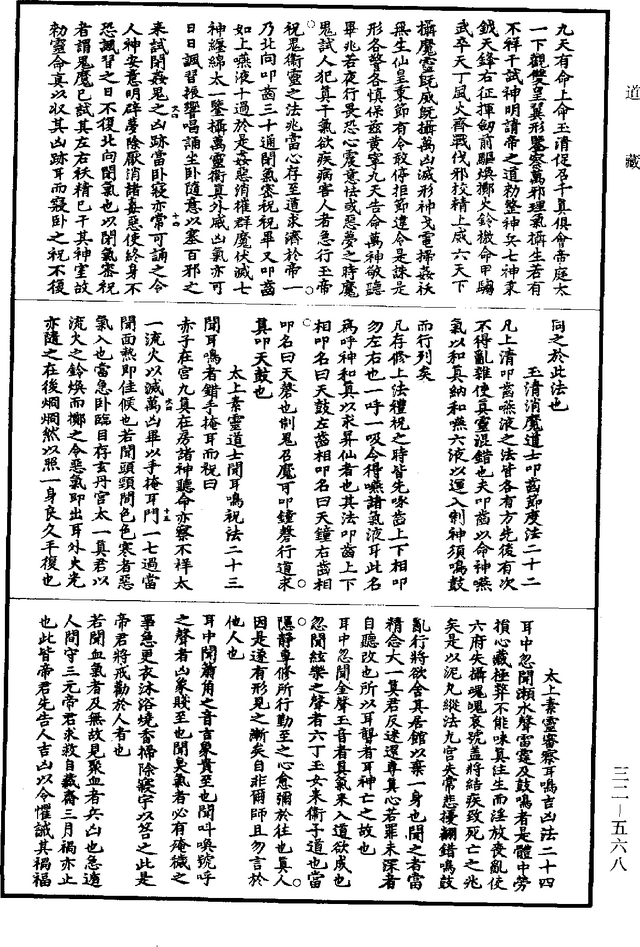 道藏
九天有命上命玉清促召千真俱會帝庭太
一下觀雙皇翼形鑒察萬邪理氣攝生若有
不祥干試神明請帝之道勑整神兵七神秉
鉞天鋒右征揮劒前驅煥擲火鈴檄命甲騶
武卒天丁風火齊戰伐邪挍精上威六天下
攝魔靈既威既攝萬凶滅形神戈電掃姦袄
無生仙皇重節有令敢停拒節違令是誅是
形各警各慎保兹黄寧九天告命萬神敬聽
畢兆若夜行畏恐心震意怯或惡夢之時魔
鬼試人犯真干氣欲疾病害人者急行玉帝
祝鬼衛靈之法兆當心存至道求濟於帝一
乃北向叩齒三十通閉氣密祝祝畢又叩齒
如上嚥液十過於是姦惡消摧群魔伏滅七
神纏綿太一鑒攝萬靈衛真外威凶氣亦可
日日諷習振響唱誦坐卧隨意以塞百邪之
來試閉姦鬼之凶跡當卧寢亦常可誦之令
人神安意明辟夢除厭消諸毒惡使終身不
恐諷習之日不復北向閉氣也以閉氣密祝
者謂鬼魔已試其左右袄精已干其神室故
勑靈命真以收其凶跡耳而寢卧之祝不復
同之於此法也
玉清消魔道士叩齒節度法二十二
凡上清叩齒嚥液之法皆各有方先後有次
不得亂雜使真靈混錯也夫叩齒以命神嚥
氣以和真納和嚥六液以運入制神須鳴鼓
而行列矣
凡存修上法禮祝之時皆先啄齒上下相叩
勿左右也一呼一吸令得嚥諸氣液耳此名
為呼神和真以求昇仙者也其法叩齒上下
相叩名曰天鼓左齒相叩名曰天鐘右齒相
叩名曰天磬也制鬼召魔可叩鐘磬行道求
真叩天鼓也
太上素靈道士聞耳鳴祝法二十三
聞耳鳴者錯手掩耳而祝曰
赤子在宫九真在房諸神聽命亦察不祥太
一流火以滅萬凶畢以手掩耳門一七過當
聞面熱即佳候也若聞頭頸間色色寒者惡
氣入也當急卧臨目存玄丹宫太一真君以
流火之鈴煥而擲之令惡氣即出耳外火光
亦隨之在後烱烱然以照一身良久平復也
太上素靈審察耳鳴吉凶法二十四
耳中忽聞瀨水聲雷霆及鼓鳴者是體中勞
損心藏極弊不能味真注生而淫放喪亂使
六府失攝魂魄哀號蓋將結疾致死亡之兆
矣是以泥丸縱法九宫失常悲擾翻錯鳴鼓
亂行將欲舍其居館以棄一身也聞之者當
精念太一真君反迷還專真心若罪未深者
自聽改也所以耳聾者耳神亡之故也
耳中忽聞金聲玉音者真氣來入道欲成也
忽聞絃樂之聲者六丁玉女來衛子道也當
隱靜專修所行勤至之心愈彌於往也真人
因是遂有形見之漸矣自非爾師且勿言於
他人也
耳中聞簫角之音吉象貴至也聞叫喚號呼
之聲者凶象賊至也聞臭氣者必有穢殗之
事急更衣沐浴燒香掃除寢宇以答之此是
帝君將戒勸於人者也
若聞血氣者及無故見聚血者兵凶也急遁
人間守三元帝君求救自藏齋三月禍亦止
也此皆帝君先告人吉凶以令懼誡其禍福
三二—五六八